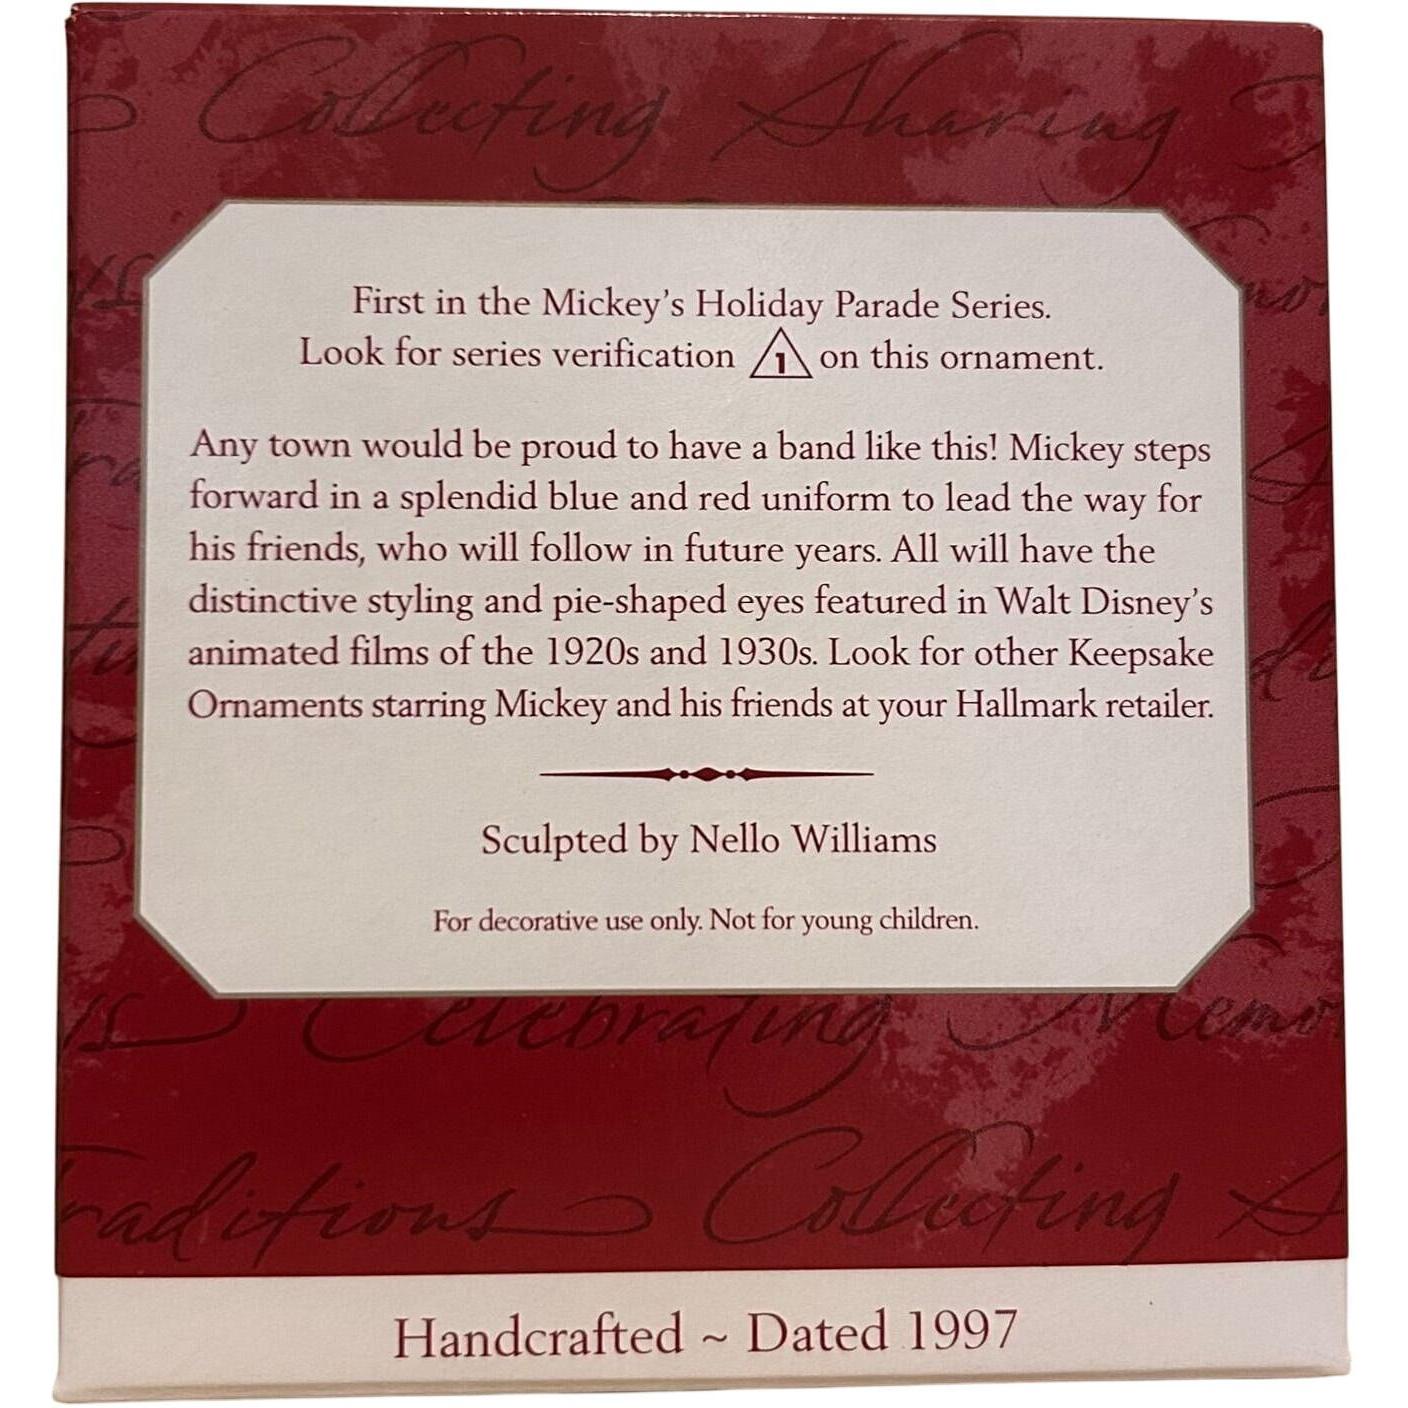 Collecting Sharing
First in the Mickey's Holiday Parade Series.
Look for series verification 1 on this ornament.
Any town would be proud to have a band like this! Mickey steps
forward in a splendid blue and red uniform to lead the way for
his friends, who will follow in future years. All will have the
distinctive styling and pie-shaped eyes featured in Walt Disney's
animated films of the 1920s and 1930s. Look for other Keepsake
Ornaments starring Mickey and his friends at your Hallmark retailer.
Sculpted by Nello Williams
For decorative use only. Not for young children.
Celebrating Memo
raditions Collecting S
Handcrafted ~ Dated 1997